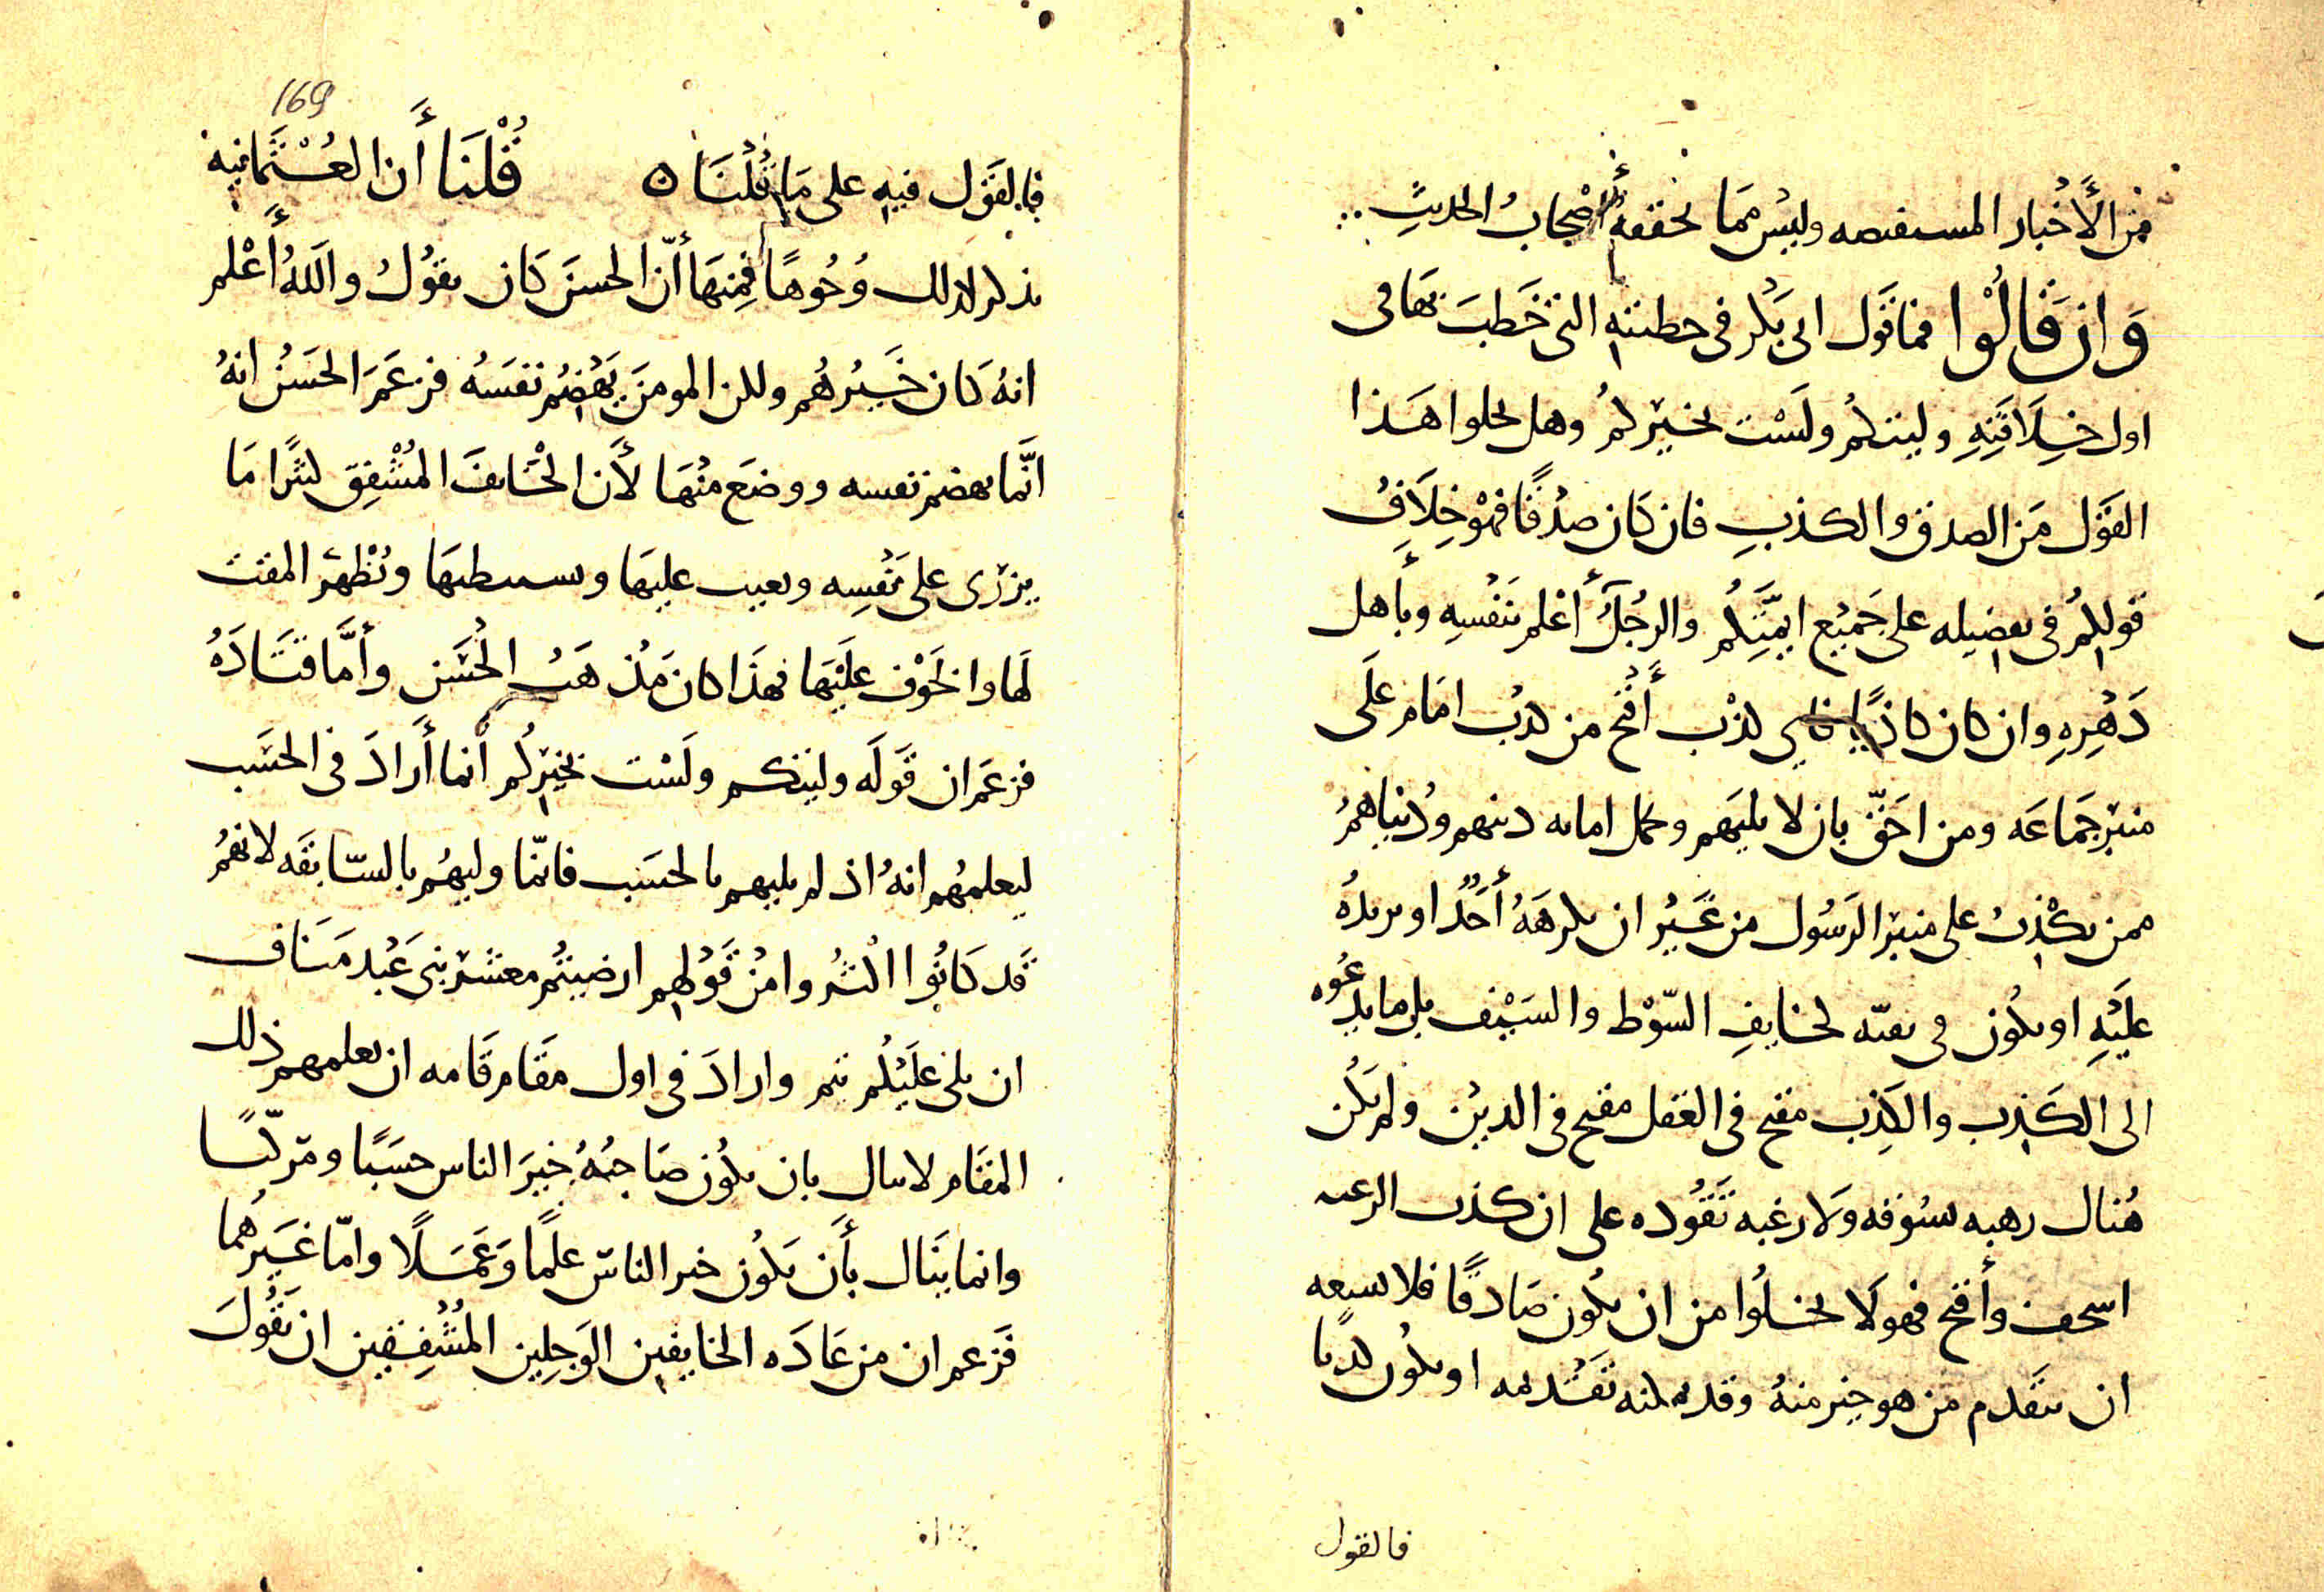 من الأخبار المستفيضه وليس مما يحققه أصحاب الحديث
وان قالوا فما قول ابى بكر فى خطبته التى خطب بها فى
اول خلافته وليتكم ولست بخيركم وهل يخلوا هذا
القول من الصدق والكذب فان كان صدقا فهو خلاف
قولكم فى تفضيله على جميع ايمتكم والرجل أعلم بنفسه وبأهل
دهره وان كان كاذبا فاى كذب أقبح من كذب امام على
منبر جماعه ومن احق بان لا يليهم وتحمل امانه دينهم ودنياهم
ممن يكذب على منبر الرسول من غير ان يكرهه أحد او يريده
عليه او يكون فى بقيه لخايف السوط والسيف بل ما يدعوه
الى الكذب والكذب مقبح فى العقل مقبح فى الدين ولم يكن
هناك رهبه تسوقه ولا رغبه تقوده على ان كذب الرعيه
اسخف وأقبح فهو لا يخلوا من ان يكون صادقا فلا يسعه
ان يتقدم من هو خير منه وقد يمكنه تقديمه او يكون كذبا
فالقول
169
فالقول فيه على ما قلنا ه قلنا أن العثمانيه
تذكر لذلك وجوها فمنها أن الحسن كان يقول والله أعلم
انه كان خيرهم ولكن المومن يهضم نفسه فزعم الحسن انه
انما يهضم نفسه ووضع منها لأن الخايف المشفق كثيرا ما
يزرى على نفسه ويعيب عليها ويستبطيها ويظهر المقت
لها والخوف عليها فهذا كان مذهب الحسن وأما قتاده
فزعم ان قوله وليتكم ولست بخيركم انما أراد فى الحسب
ليعلمهم انه اذ لم يليهم بالحسب فانما وليهم بالسابقه لانهم
قد كانوا اكثروا من قولهم ارضيتم معشر بنى عبد مناف
ان يلى عليكم تيم واراد فى اول مقام قامه ان يعلمهم ذلك
المقام لا ينال بان يكون صاحبه خير الناس حسبا ومركبا
وانما ينال بأن يكون خير الناس علما وعملا واما غيرهما
فزعم ان من عاده الخايفين الوجلين المشفقين ان تقول